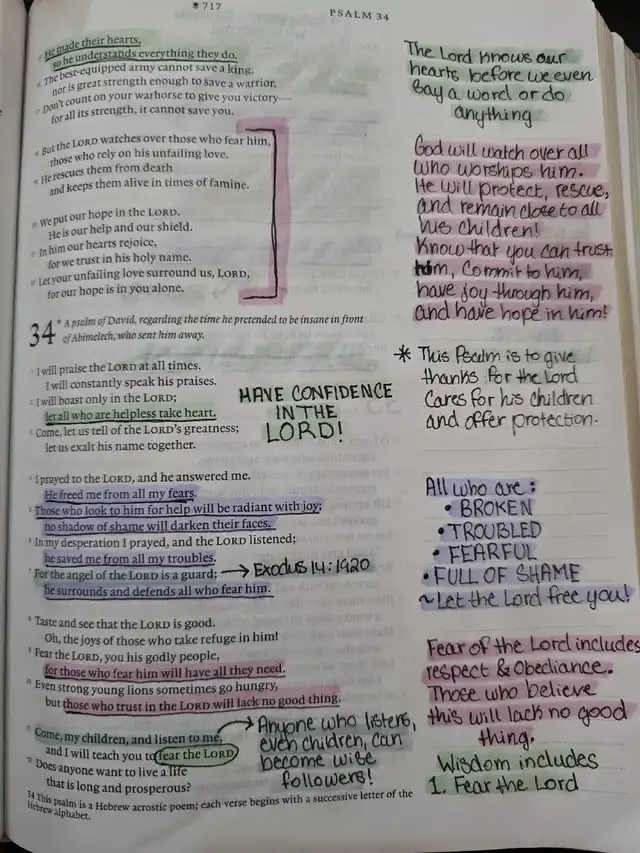 717
PSALM 34
He made their hearts,
so he understands everything they do.
The best-equipped army cannot save a king,
nor is great strength enough to save a warrior.
Don't count on your warhorse to give you victory—
for all its strength, it cannot save you.
But the LORD watches over those who fear him,
those who rely on his unfailing love.
He rescues them from death
and keeps them alive in times of famine.
We put our hope in the LORD.
He is our help and our shield.
In him our hearts rejoice,
for we trust in his holy name.
Let your unfailing love surround us, LORD,
for our hope is in you alone.
34 * A psalm of David, regarding the time he pretended to be insane in front
of Abimelech, who sent him away.
1 I will praise the LORD at all times.
I will constantly speak his praises.
2 I will boast only in the LORD;
let all who are helpless take heart.
3 Come, let us tell of the LORD's greatness;
let us exalt his name together.
HAVE CONFIDENCE
IN THE
LORD!
4 I prayed to the LORD, and he answered me.
He freed me from all my fears.
5 Those who look to him for help will be radiant with joy;
no shadow of shame will darken their faces.
6 In my desperation I prayed, and the LORD listened;
he saved me from all my troubles.
7 For the angel of the LORD is a guard; → Exodus 14:1920
he surrounds and defends all who fear him.
8 Taste and see that the LORD is good.
Oh, the joys of those who take refuge in him!
9 Fear the LORD, you his godly people,
for those who fear him will have all they need.
10 Even strong young lions sometimes go hungry,
but those who trust in the LORD will lack no good thing.
11 Come, my children, and listen to me,
and I will teach you to fear the LORD.
12 Does anyone want to live a life
that is long and prosperous?
Anyone who listens,
even children, can
become wise
followers!
34 This psalm is a Hebrew acrostic poem; each verse begins with a successive letter of the
Hebrew alphabet.
The Lord knows our
hearts before we even
say a word or do
anything
God will watch over all
who worships him.
He will protect, rescue,
and remain close to all
his children!
Know that you can trust
him, commit to him,
have joy through him,
and have hope in him!
* This Psalm is to give
thanks for the Lord
cares for his children
and offer protection.
All who are:
• BROKEN
• TROUBLED
• FEARFUL
• FULL OF SHAME
~ Let the Lord free you!
Fear of the Lord includes
respect & Obediance.
Those who believe
this will lack no good
thing.
Wisdom includes
1. Fear the Lord